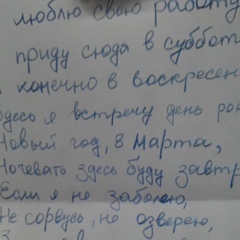 люблю свою работу
приду сюда в суббот
конечно в воскресен
здесь я встречу день рож
Новый год, 8 марта,
Ночевать здесь буду завтр
Если я не заболею,
Не сорвусь, не озверею,